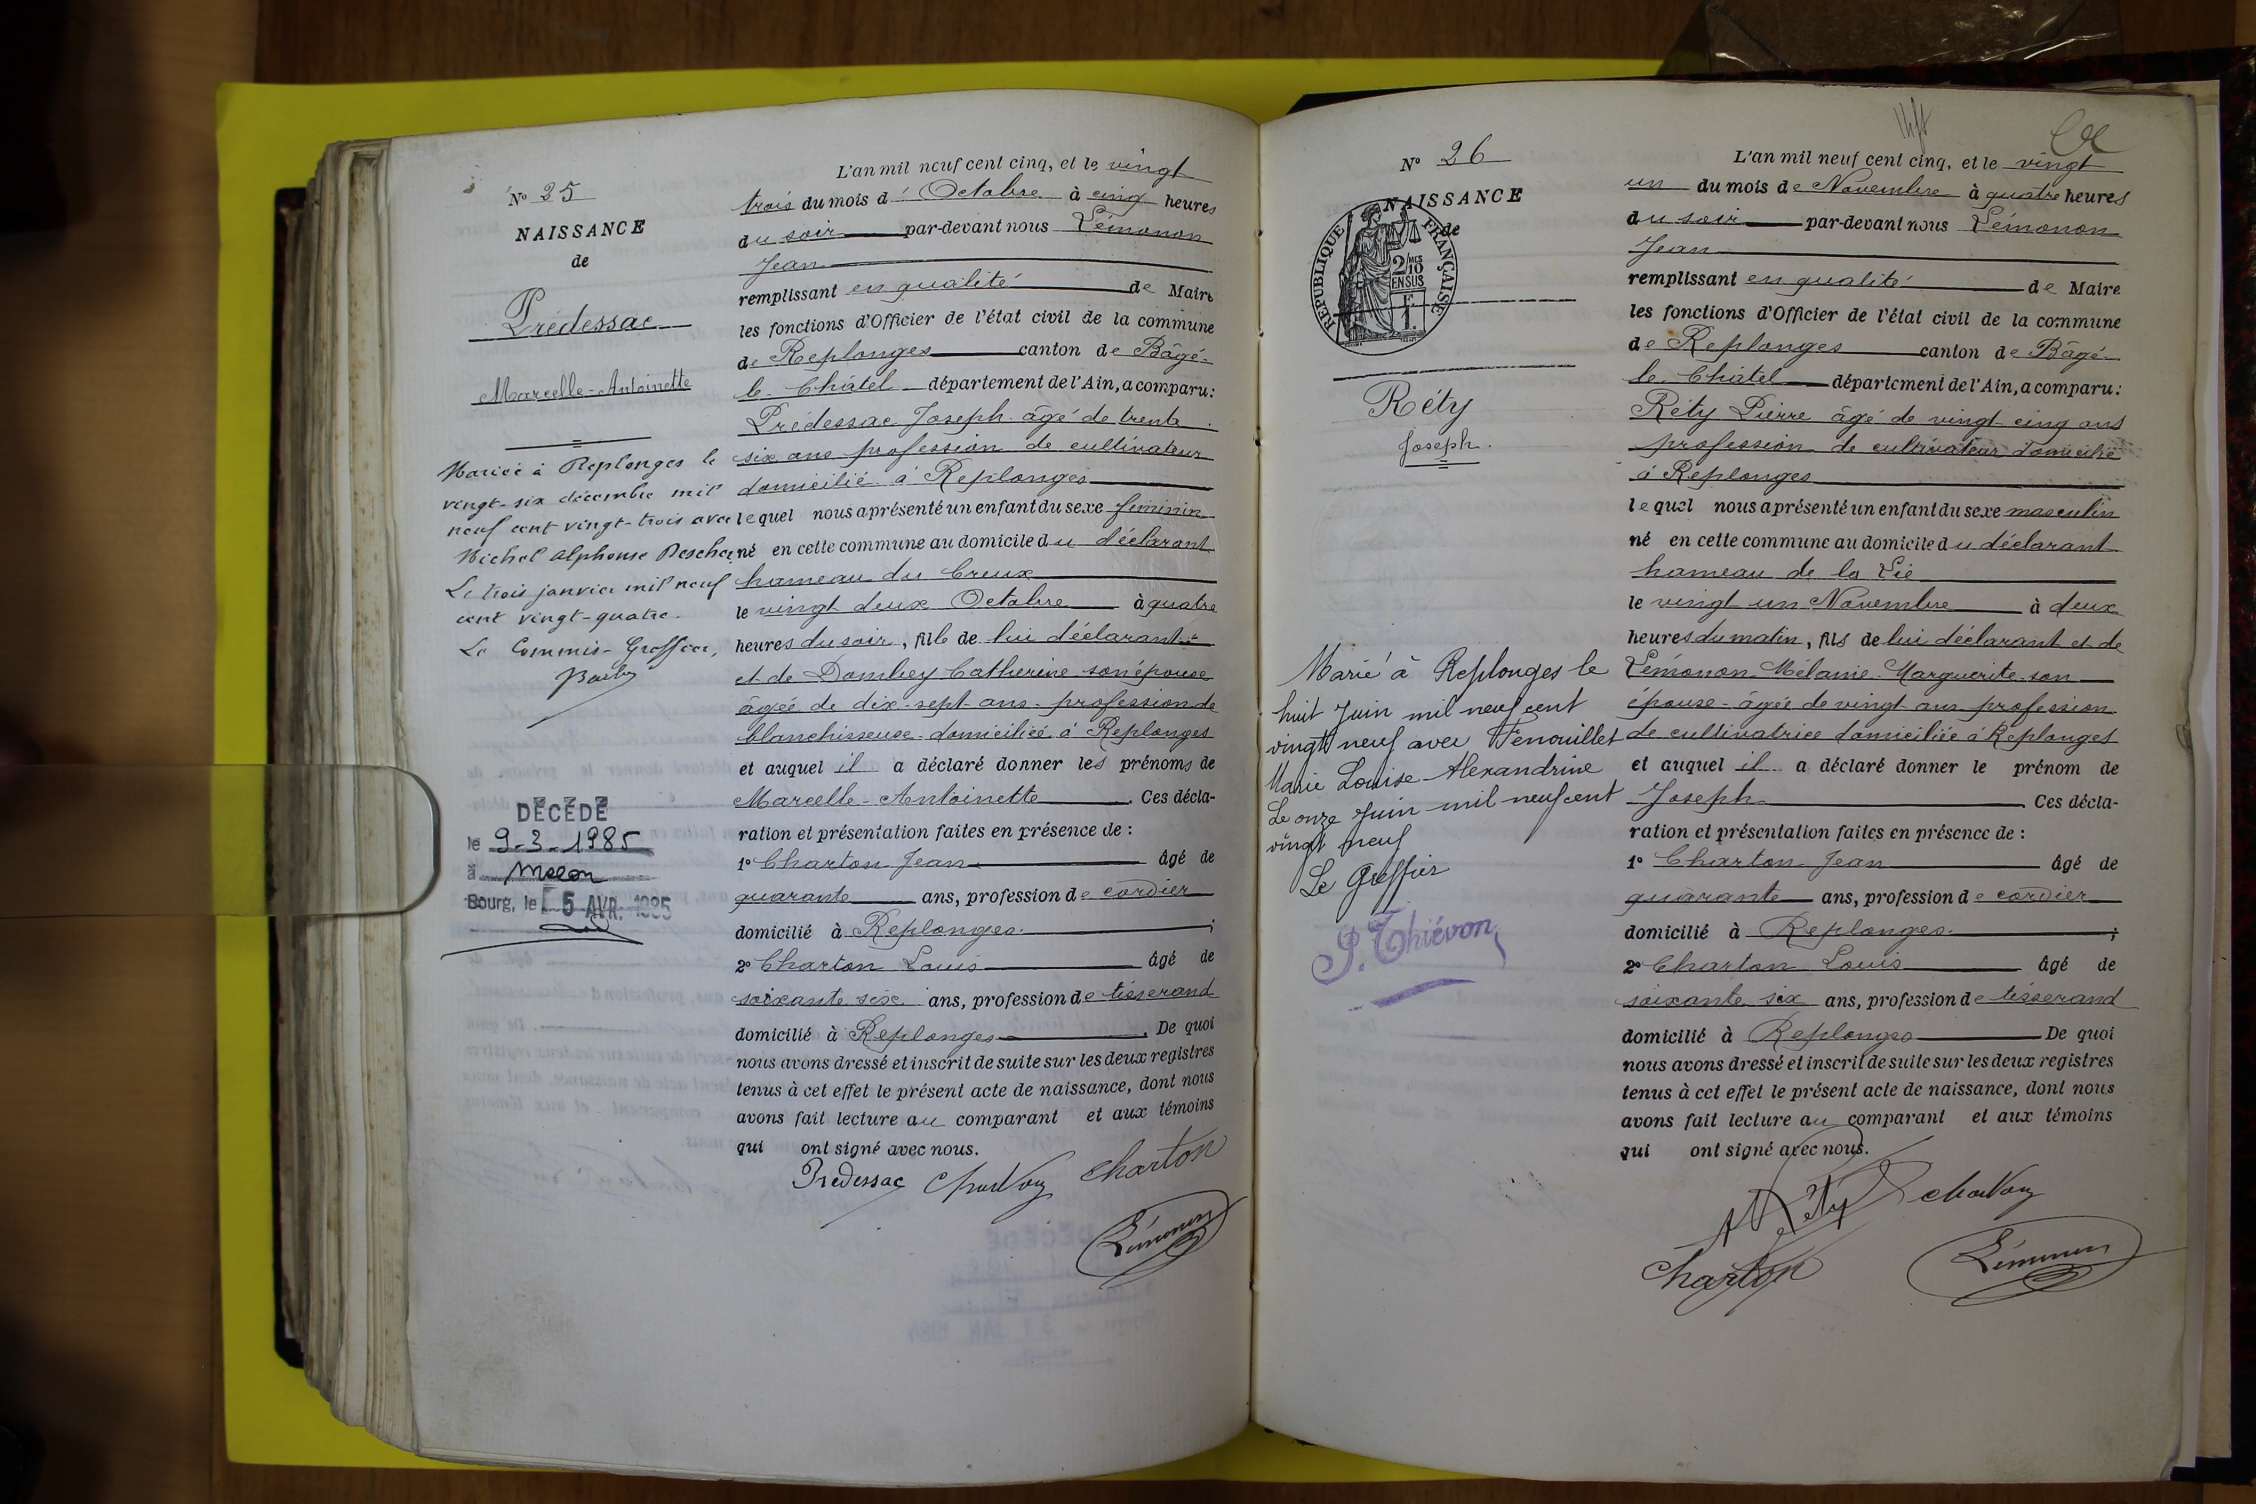 N° 25
NAISSANCE
de
Prédessac
Marcelle-Antoinette
Mariée à Replonges le
vingt-six décembre mil
neuf cent vingt-trois avec
Michel Alphonse
Le trois janvier mil neuf
cent vingt-quatre.
Le Commis-Greffier,
DÉCÉDÉ
le 9-3-1985
à Macon
Bourg, le 5 AVR. 1985
L'an mil neuf cent cinq, et le vingt
trois du mois d'Octobre à cinq heures
du soir par-devant nous Lémonon
Jean
remplissant en qualité de Maire
les fonctions d'Officier de l'état civil de la commune
de Replonges canton de Bâgé-
le Châtel département de l'Ain, a comparu:
Prédessac Joseph âgé de trente
six ans profession de cultivateur
domicilié à Replonges
lequel nous a présenté un enfant du sexe féminin
né en cette commune au domicile du déclarant
hameau du Creux
le vingt deux Octobre à quatre
heures du soir, fille de lui déclarant
et de Dombey Catherine son épouse
âgée de dix-sept ans profession de
blanchisseuse domiciliée à Replonges
et auquel il a déclaré donner les prénoms de
Marcelle-Antoinette. Ces décla-
ration et présentation faites en présence de:
1° Charton Jean âgé de
quarante ans, profession de cordier
domicilié à Replonges;
2° Charton Louis âgé de
soixante six ans, profession de tisserand
domicilié à Replonges. De quoi
nous avons dressé et inscrit de suite sur les deux registres
tenus à cet effet le présent acte de naissance, dont nous
avons fait lecture au comparant et aux témoins
qui ont signé avec nous.
Prédessac Charton Charton
Lémonon
N° 26
NAISSANCE
de
RÉPUBLIQUE FRANÇAISE
2/10 EN SUS
Réty
Joseph.
Marié à Replonges le
huit Juin mil neuf cent
vingt neuf avec Fenouillet
Marie Louise Alexandrine
Le onze Juin mil neuf cent
vingt neuf
Le Greffier
P. Thiévon
L'an mil neuf cent cinq, et le vingt
un du mois de Novembre à quatre heures
du soir par-devant nous Lémonon
Jean
remplissant en qualité de Maire
les fonctions d'Officier de l'état civil de la commune
de Replonges canton de Bâgé-
le Châtel département de l'Ain, a comparu:
Réty Pierre âgé de vingt cinq ans
profession de cultivateur domicilié
à Replonges
lequel nous a présenté un enfant du sexe masculin
né en cette commune au domicile du déclarant
hameau de la Vie
le vingt un Novembre à deux
heures du matin, fils de lui déclarant et de
Lémonon Mélanie Marguerite son
épouse âgée de vingt ans profession
de cultivatrice domiciliée à Replonges
et auquel il a déclaré donner le prénom de
Joseph. Ces décla-
ration et présentation faites en présence de:
1° Charton Jean âgé de
quarante ans, profession de cordier
domicilié à Replonges;
2° Charton Louis âgé de
soixante six ans, profession de tisserand
domicilié à Replonges De quoi
nous avons dressé et inscrit de suite sur les deux registres
tenus à cet effet le présent acte de naissance, dont nous
avons fait lecture au comparant et aux témoins
qui ont signé avec nous.
Réty Charton
Charton Lémonon